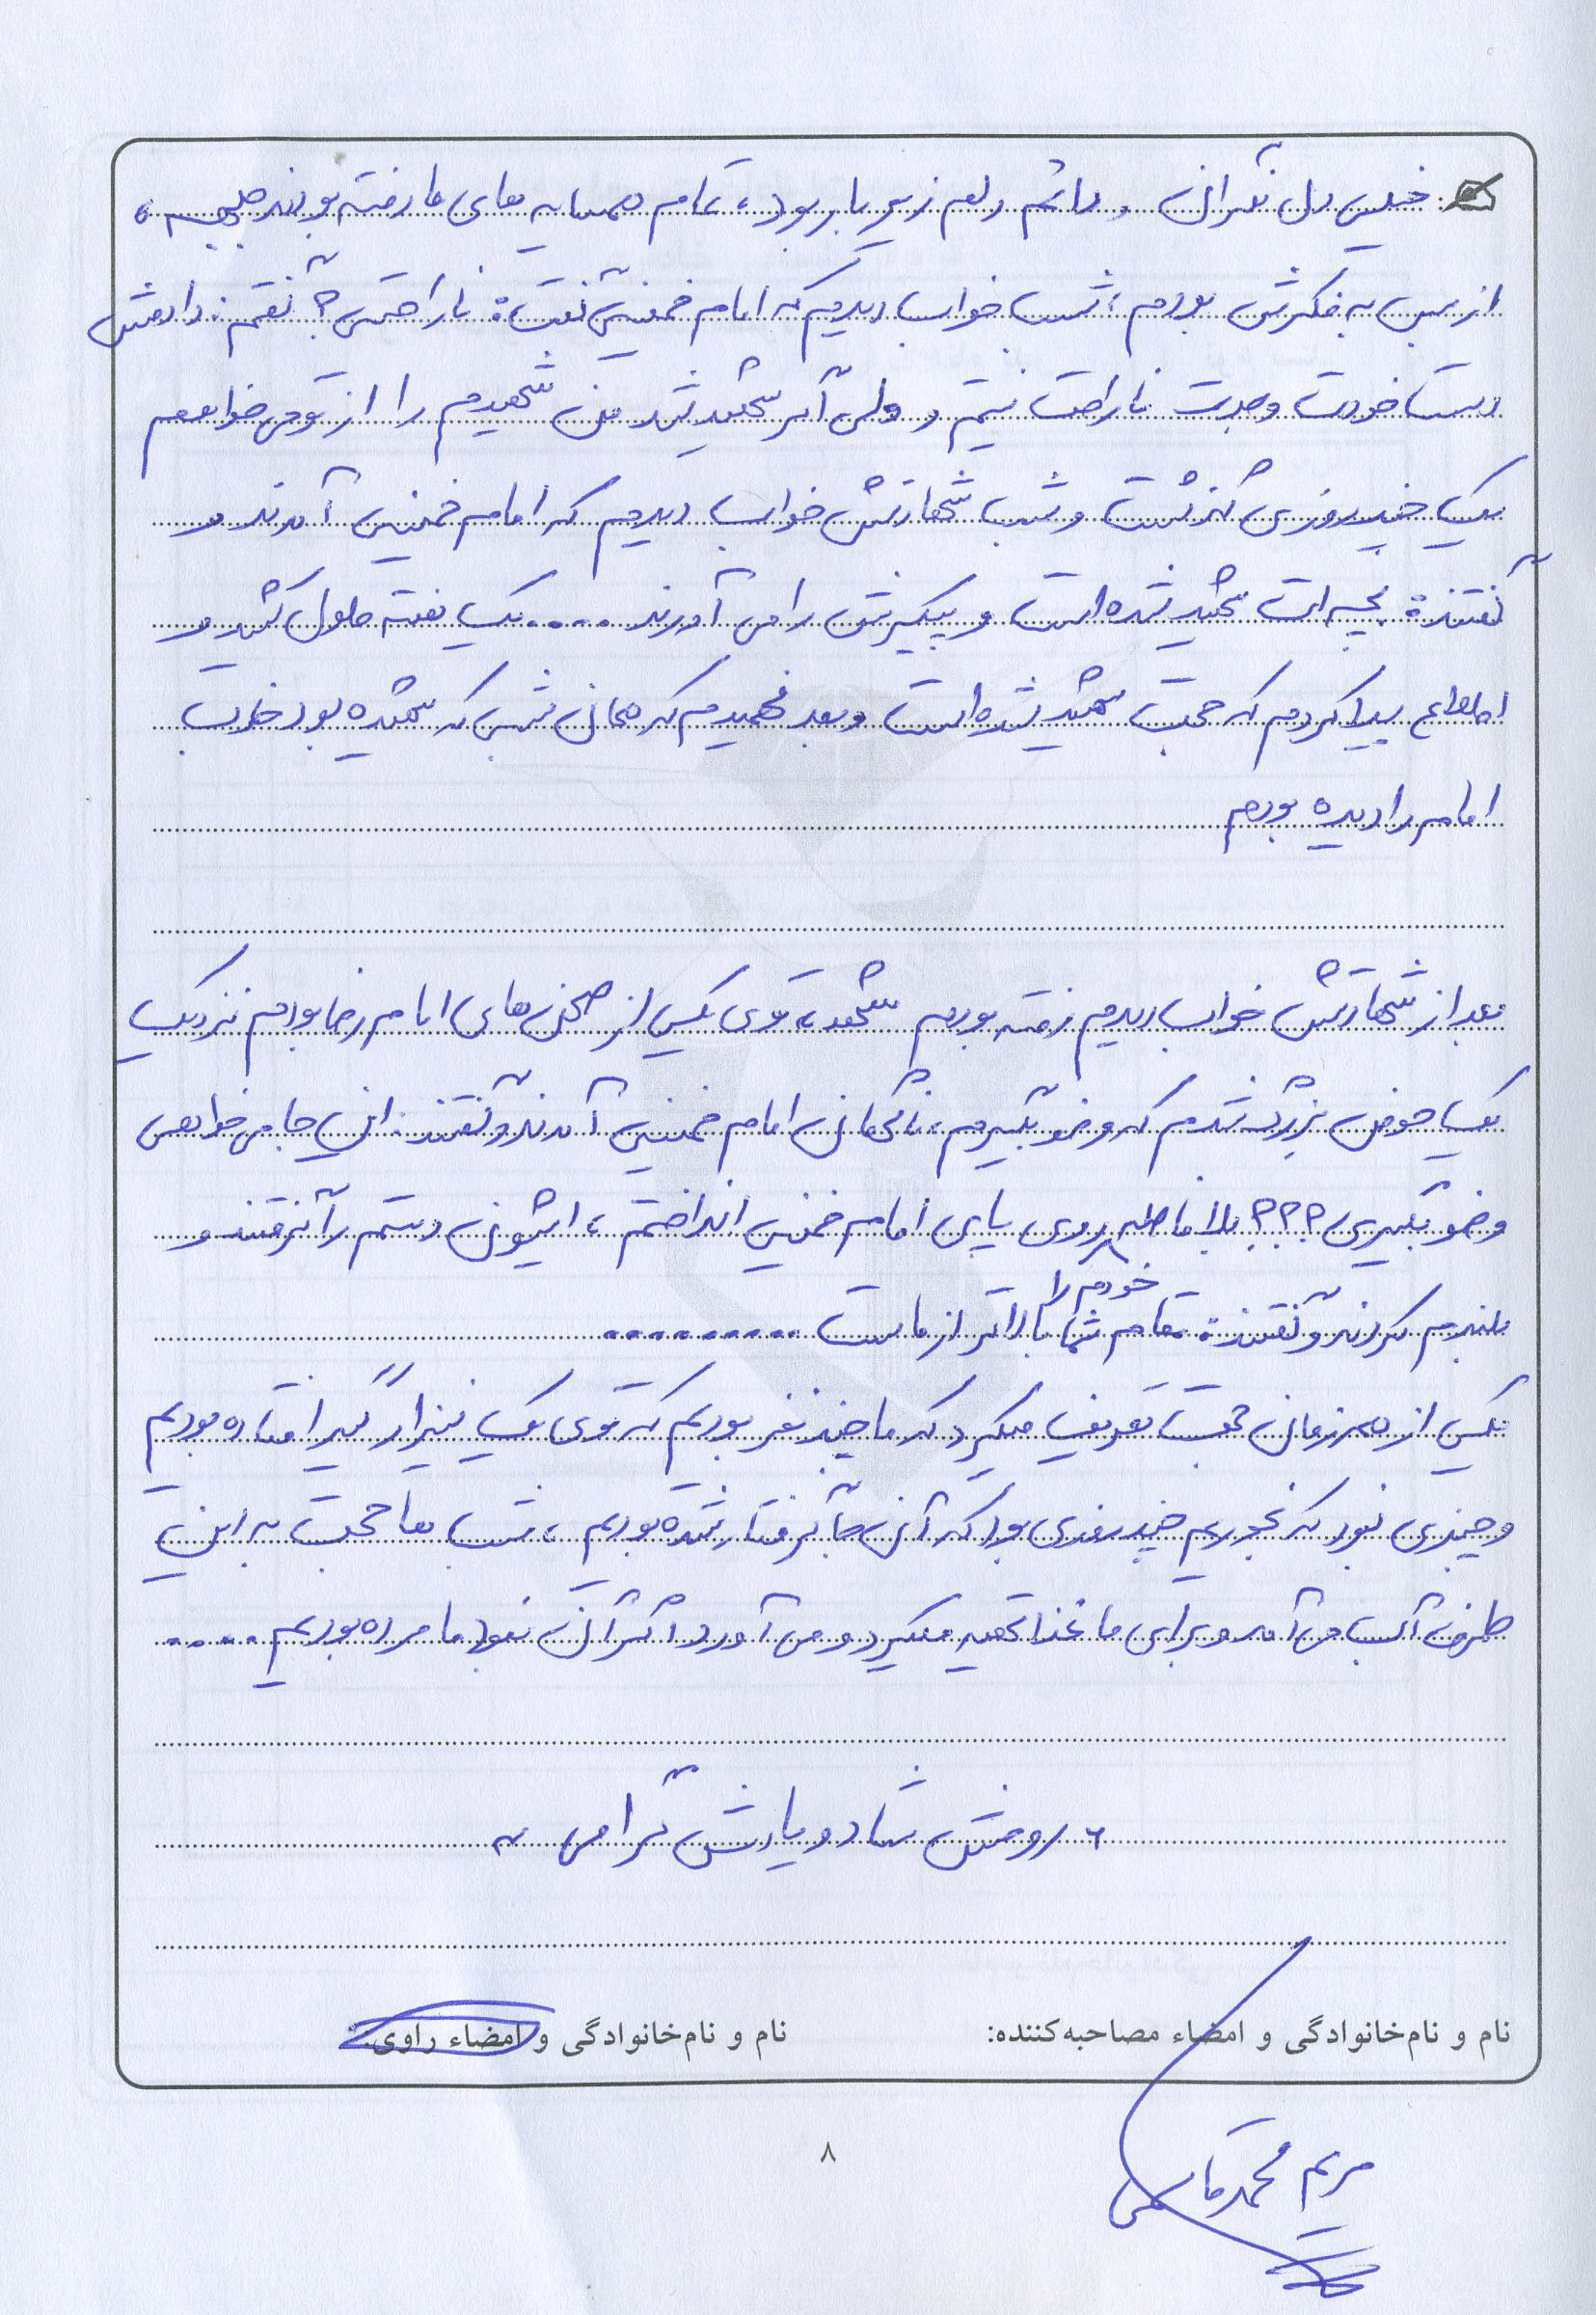 خیلی دل نگران و دائم دلم زیر یا بر بود، تمام همسایه های ما رفته بودند جبهه،
از بس به فکرش بودم، شب خواب دیدم که امام خمینی گفت: ناراحتی؟ گفتم: دادمش
دست خودت وجدت ناراحت نیستم و ولی اگر شهید شد من شهیدم را از تو می خواهم
یک چند روزی گذشت و شب شهادتش خواب دیدم که امام خمینی آمدند و
گفتند: بچه ات شهید شده است و پیکرش را می آورند .... یک هفته طول کشید و
اطلاع پیدا کردم که حجت شهید شده است و بعد فهمیدم که همان شبی که شهیده بود خواب
امام را دیده بودم
بعد از شهادتش خواب دیدم رفته بودم مشهد، توی یکی از صحن های امام رضا بودم نزدیک
یک حوض بزرگ شدم که وضو بگیرم، ناگهان امام خمینی آمدند و گفتند: این جا می خواهی
وضو بگیری؟؟؟ بلافاصله روی پای امام خمینی انداختم، ایشون دستم را گرفتند و
خودم را
بلندم کردند و گفتند: مقام شما بالاتر از ماست ..........
یکی از همرزمان حجت تعریف میکرد که ما چند نفر بودیم که توی یک نیزار گیر افتاده بودیم
و چیزی نبود که بخوریم چند روزی بود که آن جا گرفتار شده بودیم، شب ها حجت به این
طرف آب می آمد و برای ما غذا تهیه میکرد و می آورد اگر آن نبود ما مرده بودیم ....
روحش شاد و یادش گرامی
نام و نام‌خانوادگی و امضاء مصاحبه‌کننده:
نام و نام‌خانوادگی و امضاء راوی:
۸
مریم محمدقاسمی